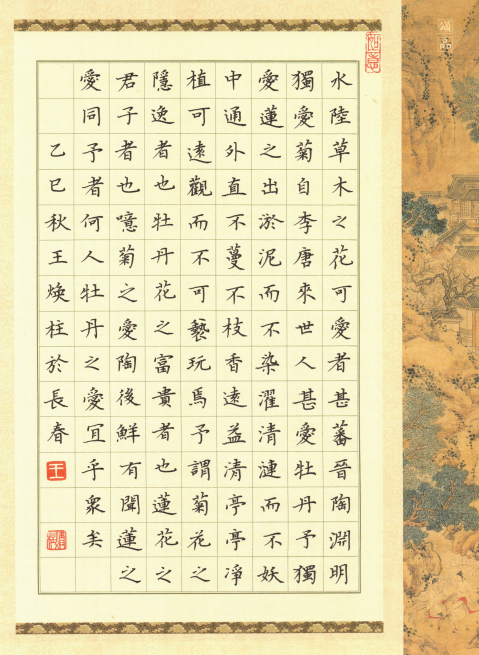 水陸草木之花可愛者甚蕃晉陶淵明
獨愛菊自李唐來世人甚愛牡丹予獨
愛蓮之出淤泥而不染濯清漣而不妖
中通外直不蔓不枝香遠益清亭亭淨
植可遠觀而不可褻玩焉予謂菊花之
隱逸者也牡丹花之富貴者也蓮花之
君子者也噫菊之愛陶後鮮有聞蓮之
愛同予者何人牡丹之愛宜乎眾矣
乙巳秋王煥柱於長春
王